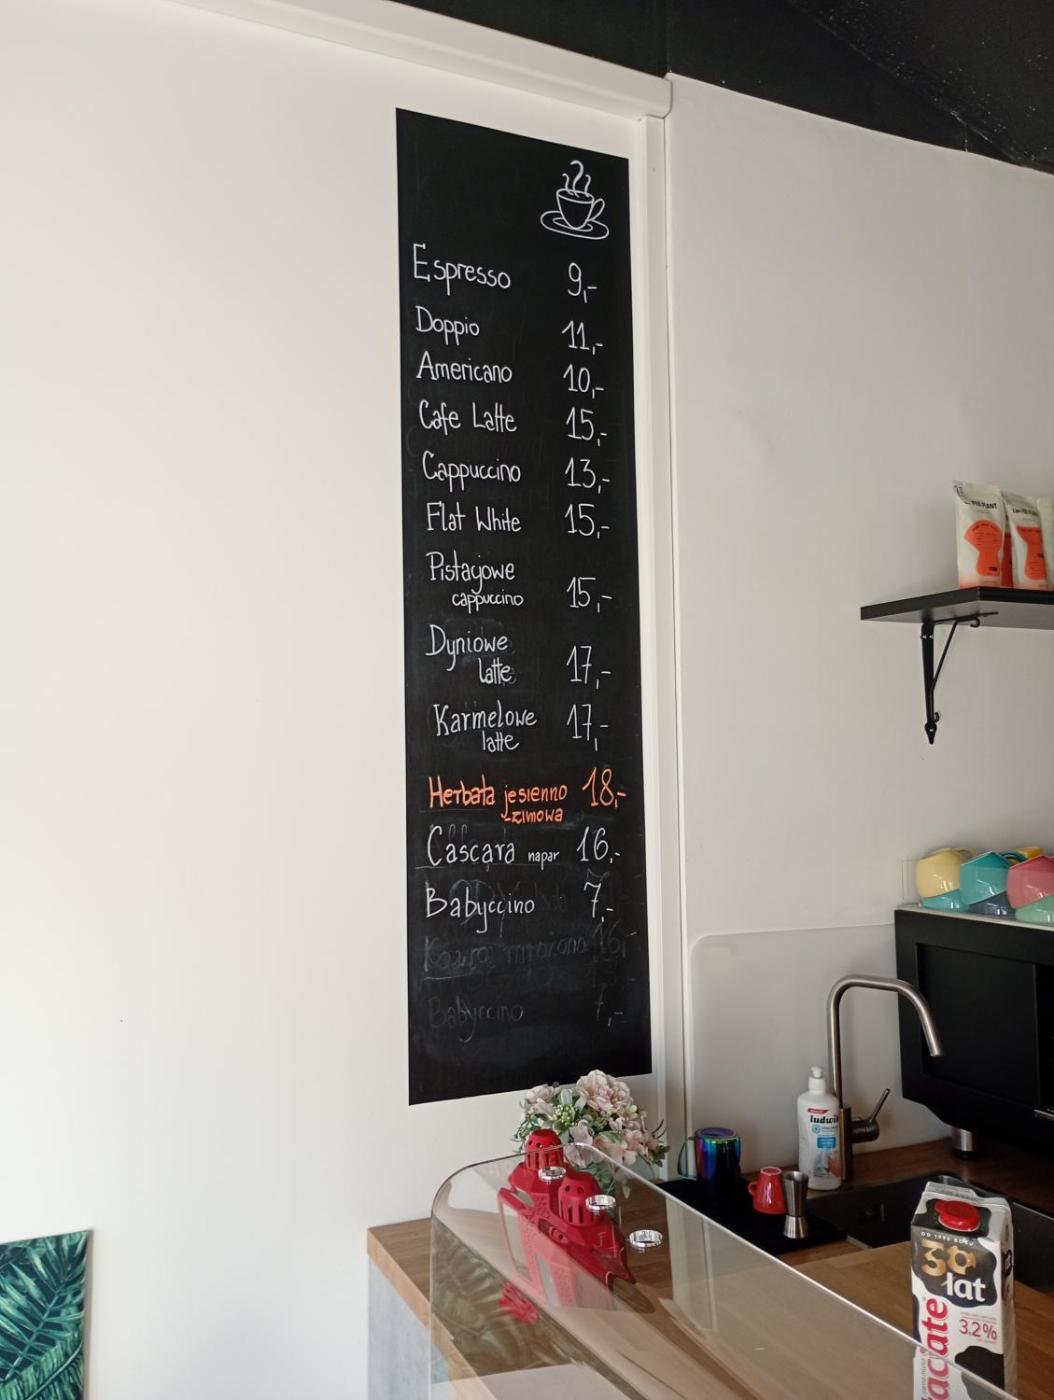 Espresso 9,-
Doppio 11,-
Americano 10,-
Cafe Latte 15,-
Cappuccino 13,-
Flat White 15,-
Pistacjowe
cappuccino 15,-
Dyniowe
latte 17,-
Karmelowe 17,-
latte
Herbata jesienno 18,-
-zimowa
Cascara napar 16,-
Babyccino 7,-
Kawa mrożona 16,-
Babyccino 7,-
ludwik
OD 1992 ROKU
30
lat
3,2%